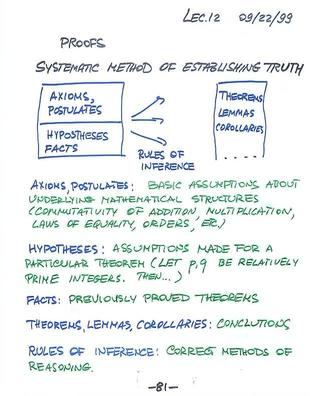 LEC.12 09/22/99
PROOFS
SYSTEMATIC METHOD OF ESTABLISHING TRUTH
AXIOMS,
POSTULATES
HYPOTHESES
FACTS
RULES OF
INFERENCE
THEOREMS
LEMMAS
COROLLARIES
. . . . .
AXIOMS, POSTULATES: BASIC ASSUMPTIONS ABOUT
UNDERLYING MATHEMATICAL STRUCTURES
(COMMUTATIVITY OF ADDITION, MULTIPLICATION,
LAWS OF EQUALITY, ORDERS, ETC.)
HYPOTHESES: ASSUMPTIONS MADE FOR A
PARTICULAR THEOREM (LET p,q BE RELATIVELY
PRIME INTEGERS. THEN...)
FACTS: PREVIOUSLY PROVED THEOREMS
THEOREMS, LEMMAS, COROLLARIES: CONCLUTIONS
RULES OF INFERENCE: CORRECT METHODS OF
REASONING.
-81-